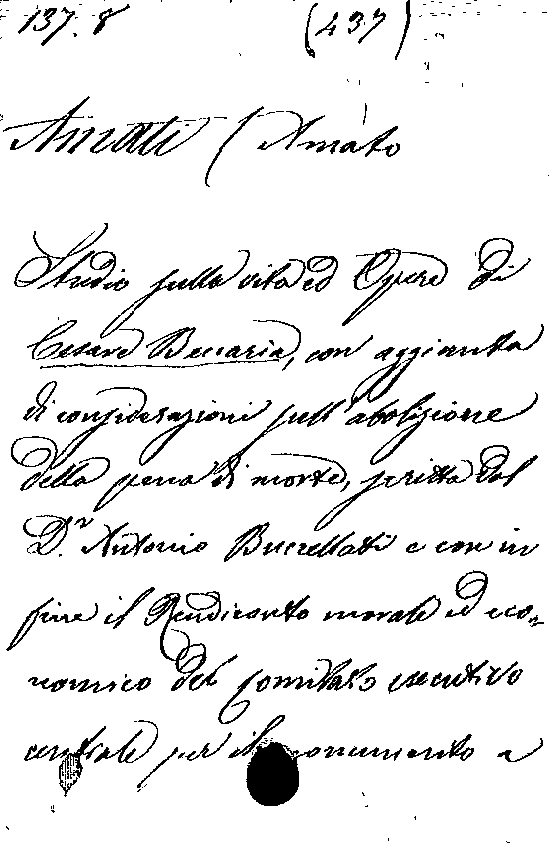 137. 8 (437)
Amati (Amato
Studio sulla vita ed Opere di
Cesare Beccaria, con aggiunta
di considerazioni sull'abolizione
della pena di morte, scritta dal
D.r Antonio Buccellati e con in
fine il Rendiconto morale ed eco-
nomico del Comitato esecutivo
centrale per il monumento a